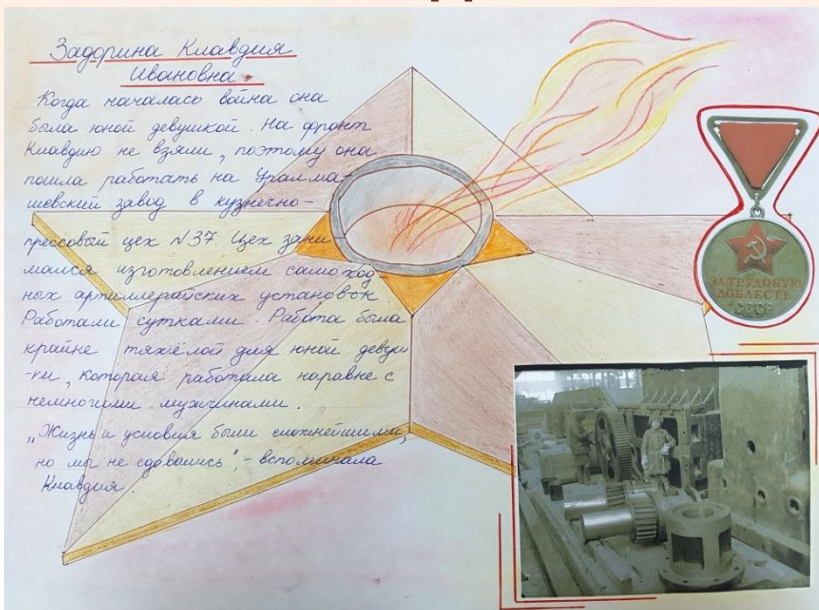 Задорина Клавдия
Ивановна.
Когда началась война она
была юной девушкой. На фронт
Клавдию не взяли, поэтому она
пошла работать на Уралма-
шевский завод в кузнечно-
прессовый цех №37 Цех зани
мался изготовлением самоход-
ных артиллерийских установок
Работали сутками. Работа была
крайне тяжёлой для юной девуш
-ки, которая работала наравне с
немногими мужчинами.
„Жизнь и условия были сложнейшими,
но мы не сдовались", - вспоминала
Клавдия.
ЗА ТРУДОВУЮ
ДОБЛЕСТЬ
СССР